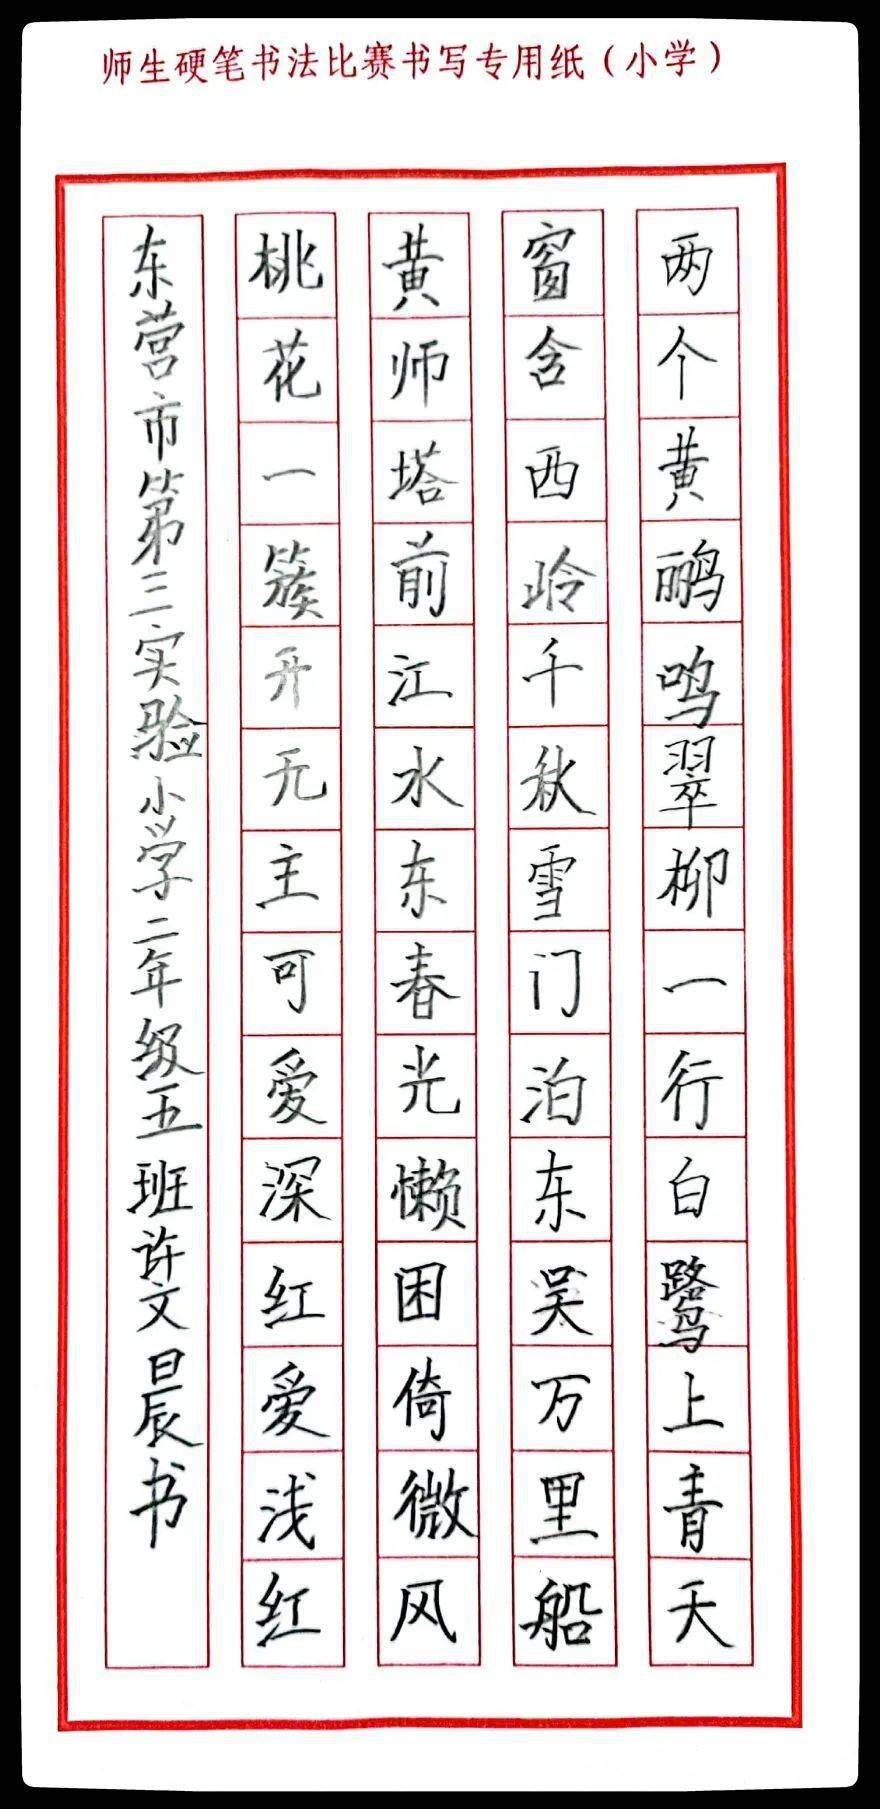 师生硬笔书法比赛书写专用纸（小学）
两个黄鹂鸣翠柳一行白鹭上青天
窗含西岭千秋雪门泊东吴万里船
黄师塔前江水东春光懒困倚微风
桃花一簇开无主可爱深红爱浅红
东营市第三实验小学二年级五班许文晨书